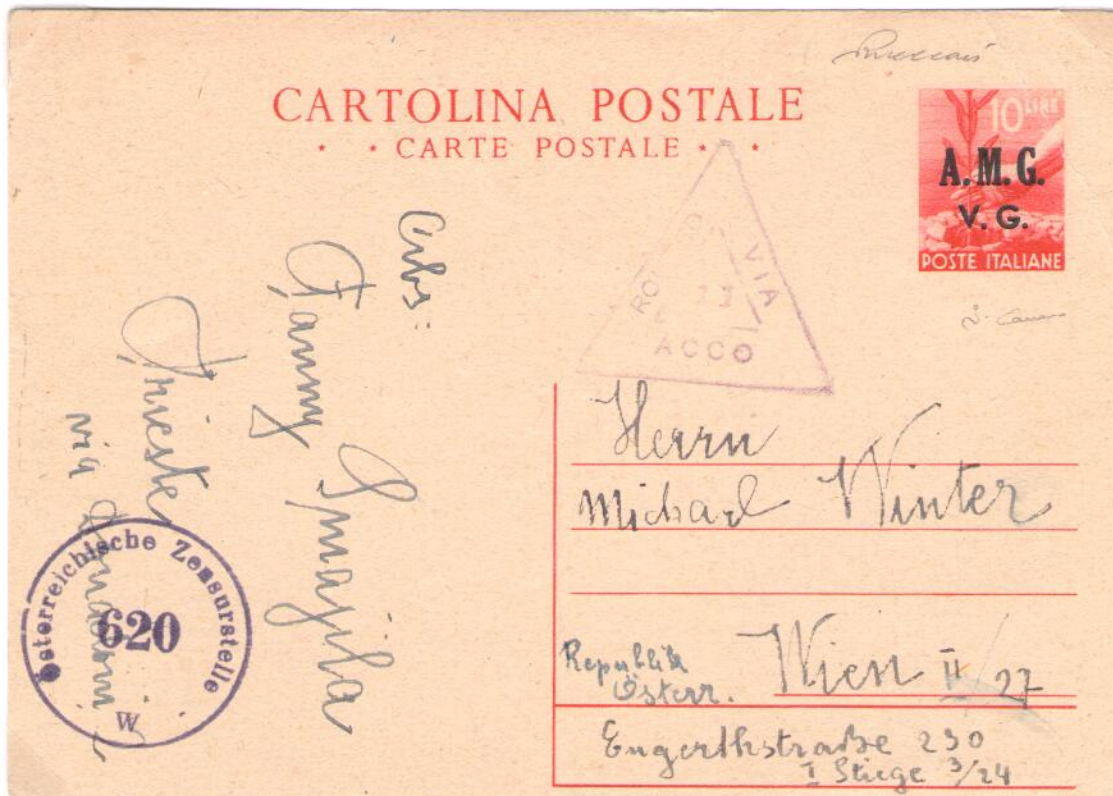 CARTOLINA POSTALE
CARTE POSTALE
10 LIRE
A.M.G.
V. G.
POSTE ITALIANE
VIA
ACCO
Abs:
Fanny
Trieste
via
Österreichische Zensurstelle
620
W
Herrn
Michael Winter
Wien II/27
Republik
Österr.
Engerthstraße 230
I Stiege 3/24